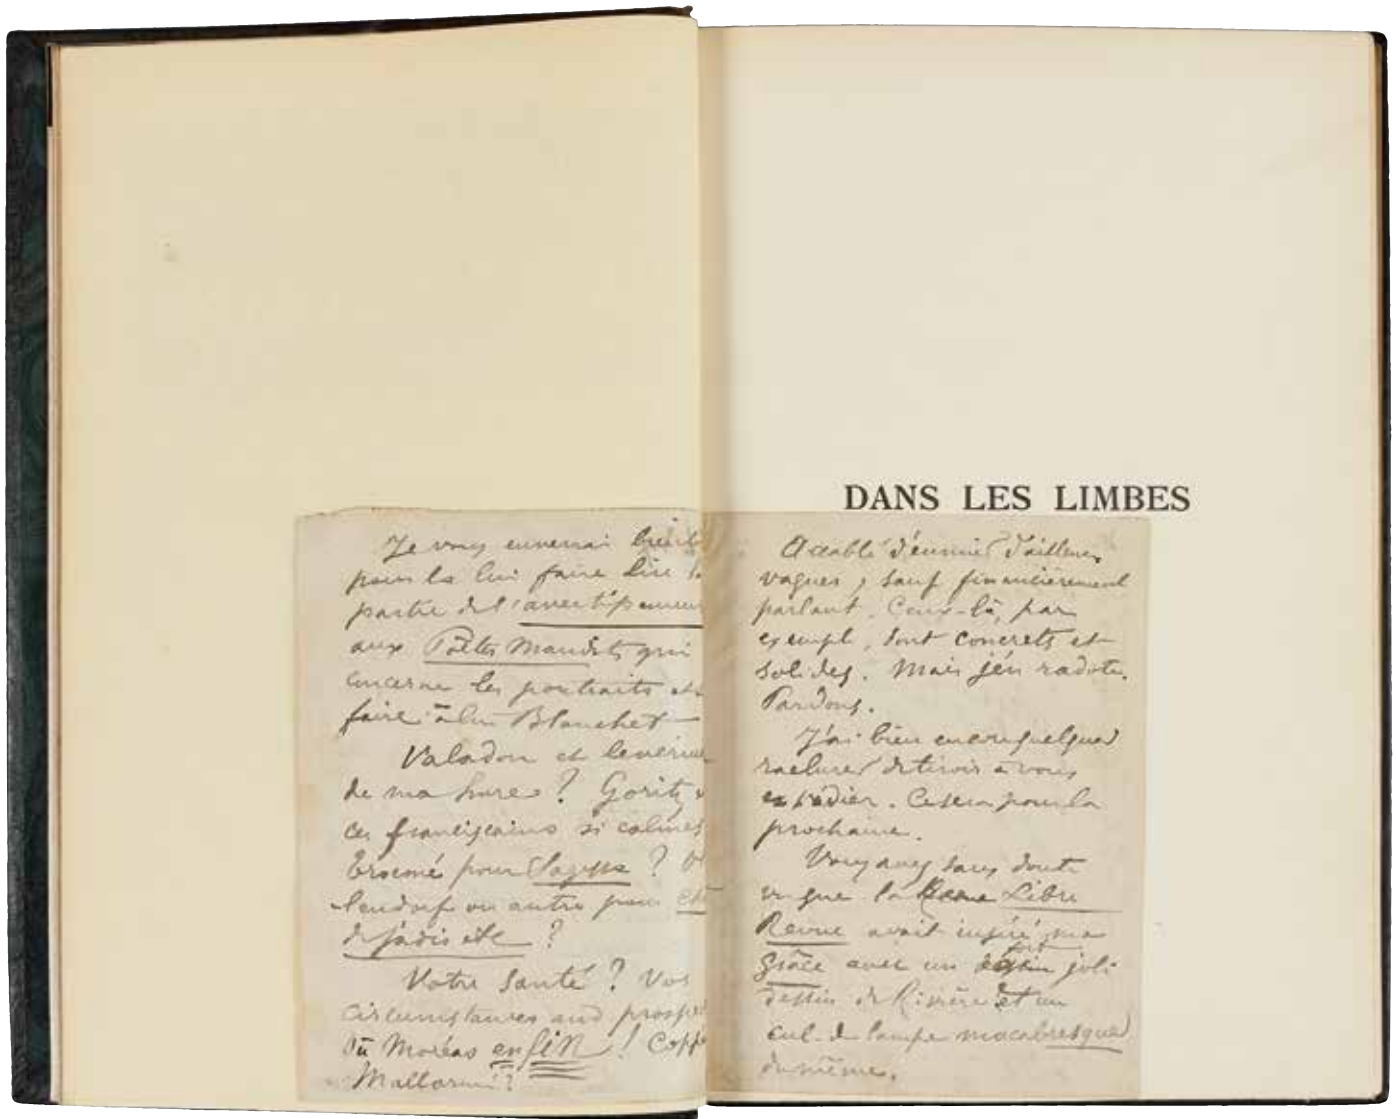 Je vous enverrai bientô
pour la lui faire lire l
partie de l'avertissemen
aux Poètes Maudits qui
concerne les portraits et
faire à lui Blanchet —
Valadon et
de ma hure ? Goritz
ces franciscains si calmes
Trocmé pour Sagesse ?
lendorf ou autre pour
de jadis etc ?
Votre santé ? Vos
circumstances and prosper
Où Moréas enfin ! Copp
Mallarmé ?
DANS LES LIMBES
Accablé d'ennuis d'ailleurs
vagues, sauf financièrement
parlant. Ceux-là, par
exemple, sont concrets et
solides. Mais j'en radote.
Pardons.
J'ai bien encore quelques
raclures de tiroir à vous
expédier. Ce sera pour la
prochaine.
Vous avez sans doute
vu que la Revue Libre
Revue avait inséré ma
Grâce avec un fort joli
dessin de Rivière et un
cul-de-lampe macabresque
du même.